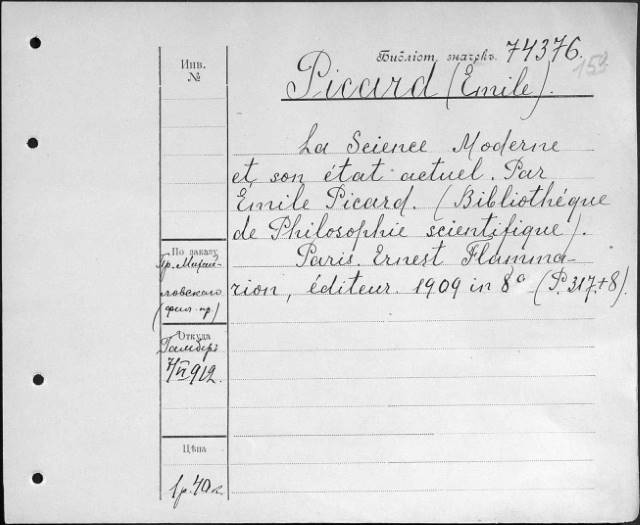 Библіот. значекъ 74376.
153
Picard (Émile).
La Science Moderne
et son état actuel. Par
Émile Picard. (Bibliothéque
de Philosophie scientifique).
Paris. Ernest Flamma-
rion, éditeur. 1909 in 8° (P. 317+8).
Инв.
№
По заказу
Гр. Михай-
ловскаго
(фил. пр)
Откуда
Гамберъ
7/VI 912.
Цѣна
1р. 40к.